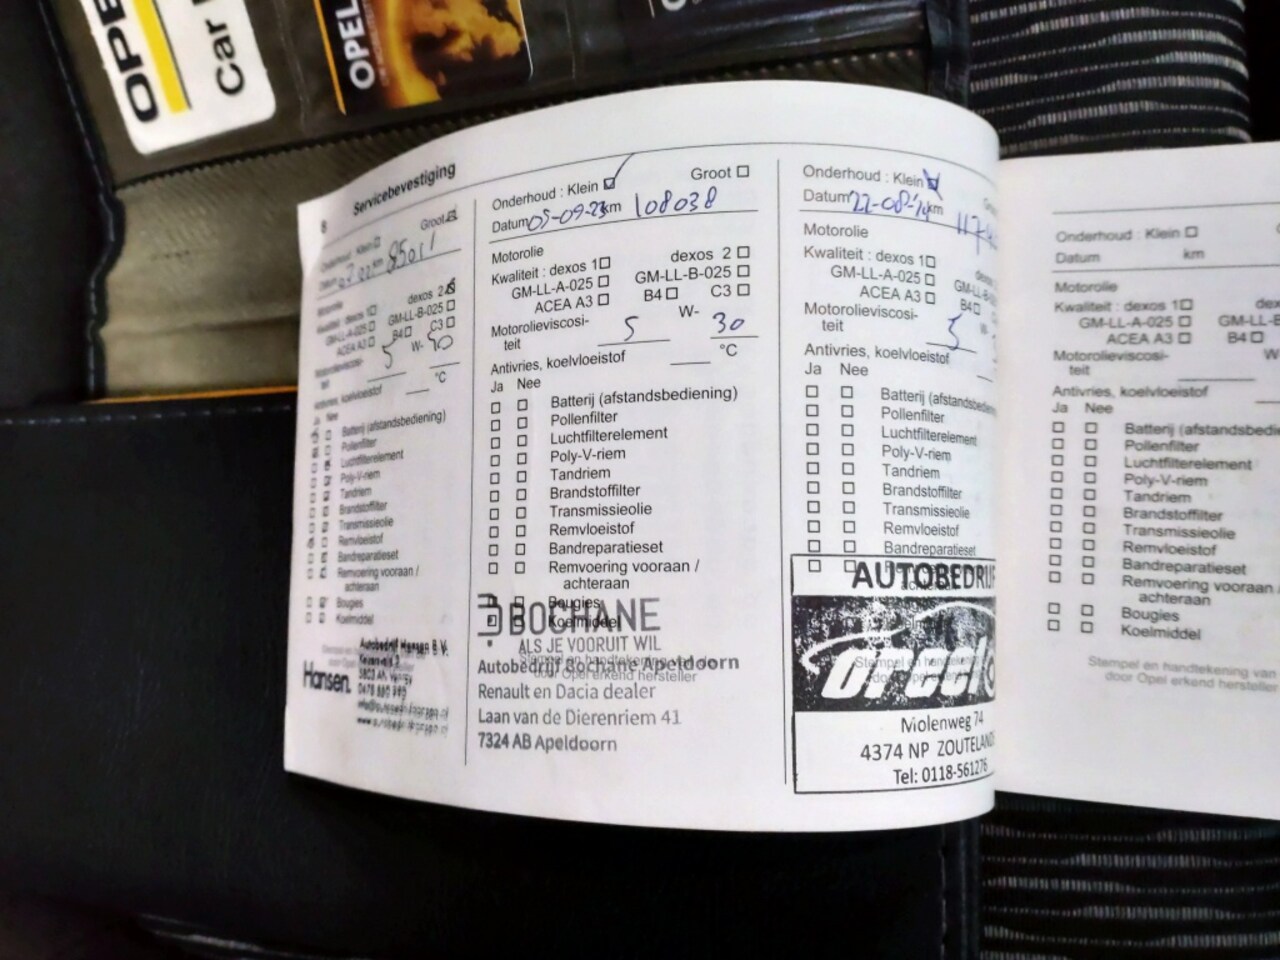 OPEL
Car
OPEL
8 Servicebevestiging
Onderhoud : Klein Groot
Datum km 8501
Motorolie
Kwaliteit : dexos 1 dexos 2
GM-LL-A-025 GM-LL-B-025
ACEA A3 B4 C3
Motorolieviscosi- W-
teit 5
Antivries, koelvloeistof °C
Nee
Batterij (afstandsbediening)
Pollenfilter
Luchtfilterelement
Poly-V-riem
Tandriem
Brandstoffilter
Transmissieolie
Remvloeistof
Bandreparatieset
Remvoering vooraan /
achteraan
Bougies
Koelmiddel
Autobedrijf Hansen B.V.
Hansen.
Onderhoud : Klein Groot
Datum 05-09-23 km 108038
Motorolie
Kwaliteit : dexos 1 dexos 2
GM-LL-A-025 GM-LL-B-025
ACEA A3 B4 C3
Motorolieviscosi- W-
teit 5 30
Antivries, koelvloeistof °C
Ja Nee
Batterij (afstandsbediening)
Pollenfilter
Luchtfilterelement
Poly-V-riem
Tandriem
Brandstoffilter
Transmissieolie
Remvloeistof
Bandreparatieset
Remvoering vooraan /
achteraan
Bougies
Koelmiddel
BOCHANE
ALS JE VOORUIT WIL
Stempel en handtekening van
door Opel erkend hersteller
Autobedrijf Bochane Apeldoorn
Renault en Dacia dealer
Laan van de Dierenriem 41
7324 AB Apeldoorn
Onderhoud : Klein
Datum 22-08-'24 km 117
Motorolie
Kwaliteit : dexos 1
GM-LL-A-025
ACEA A3 B4
Motorolieviscosi-
teit 5
Antivries, koelvloeistof
Ja Nee
Batterij (afstandsbedien
Pollenfilter
Luchtfilterelement
Poly-V-riem
Tandriem
Brandstoffilter
Transmissieolie
Remvloeistof
Bandreparatieset
AUTOBEDRIJF
Stempel en handtekening
door Opel erkend
Molenweg 74
4374 NP ZOUTELAND
Tel: 0118-561276
Onderhoud : Klein
Datum km
Motorolie
Kwaliteit : dexos 1
GM-LL-A-025 GM-LL-B
ACEA A3 B4
Motorolieviscosi-
teit
Antivries, koelvloeistof
Ja Nee
Batterij (afstandsbedie
Pollenfilter
Luchtfilterelement
Poly-V-riem
Tandriem
Brandstoffilter
Transmissieolie
Remvloeistof
Bandreparatieset
Remvoering vooraan /
achteraan
Bougies
Koelmiddel
Stempel en handtekening van
door Opel erkend hersteller